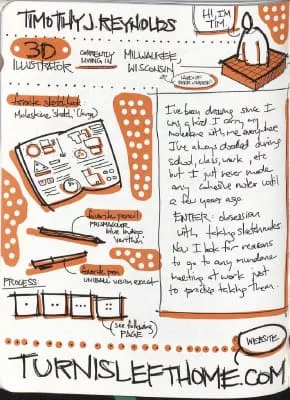 TIMOTHY J. REYNOLDS
HI, I'M
TIM.
3D
ILLUSTRATOR
CURRENTLY
LIVING IN
MILWAUKEE,
WISCONSIN
LAND OF
favorite sketchbook
Moleskine, Sketch, (large)
I've been drawing since I
was a kid I carry my
moleskine with me everywhere
I've always doodled during
school, class, work, etc
but I just never made
any cohesive notes until
a few years ago.
ENTER: obsession
with taking sketchnotes
Now I look for reasons
to go to any mundane
meeting at work just
to practice taking them.
favorite pencil
PRISMACOLOR
blue indigo
"verithin"
favorite pen
UNIBALL VISION EXACT
PROCESS:
(see following
PAGE)
WEBSITE
TURNISLEFTHOME.COM